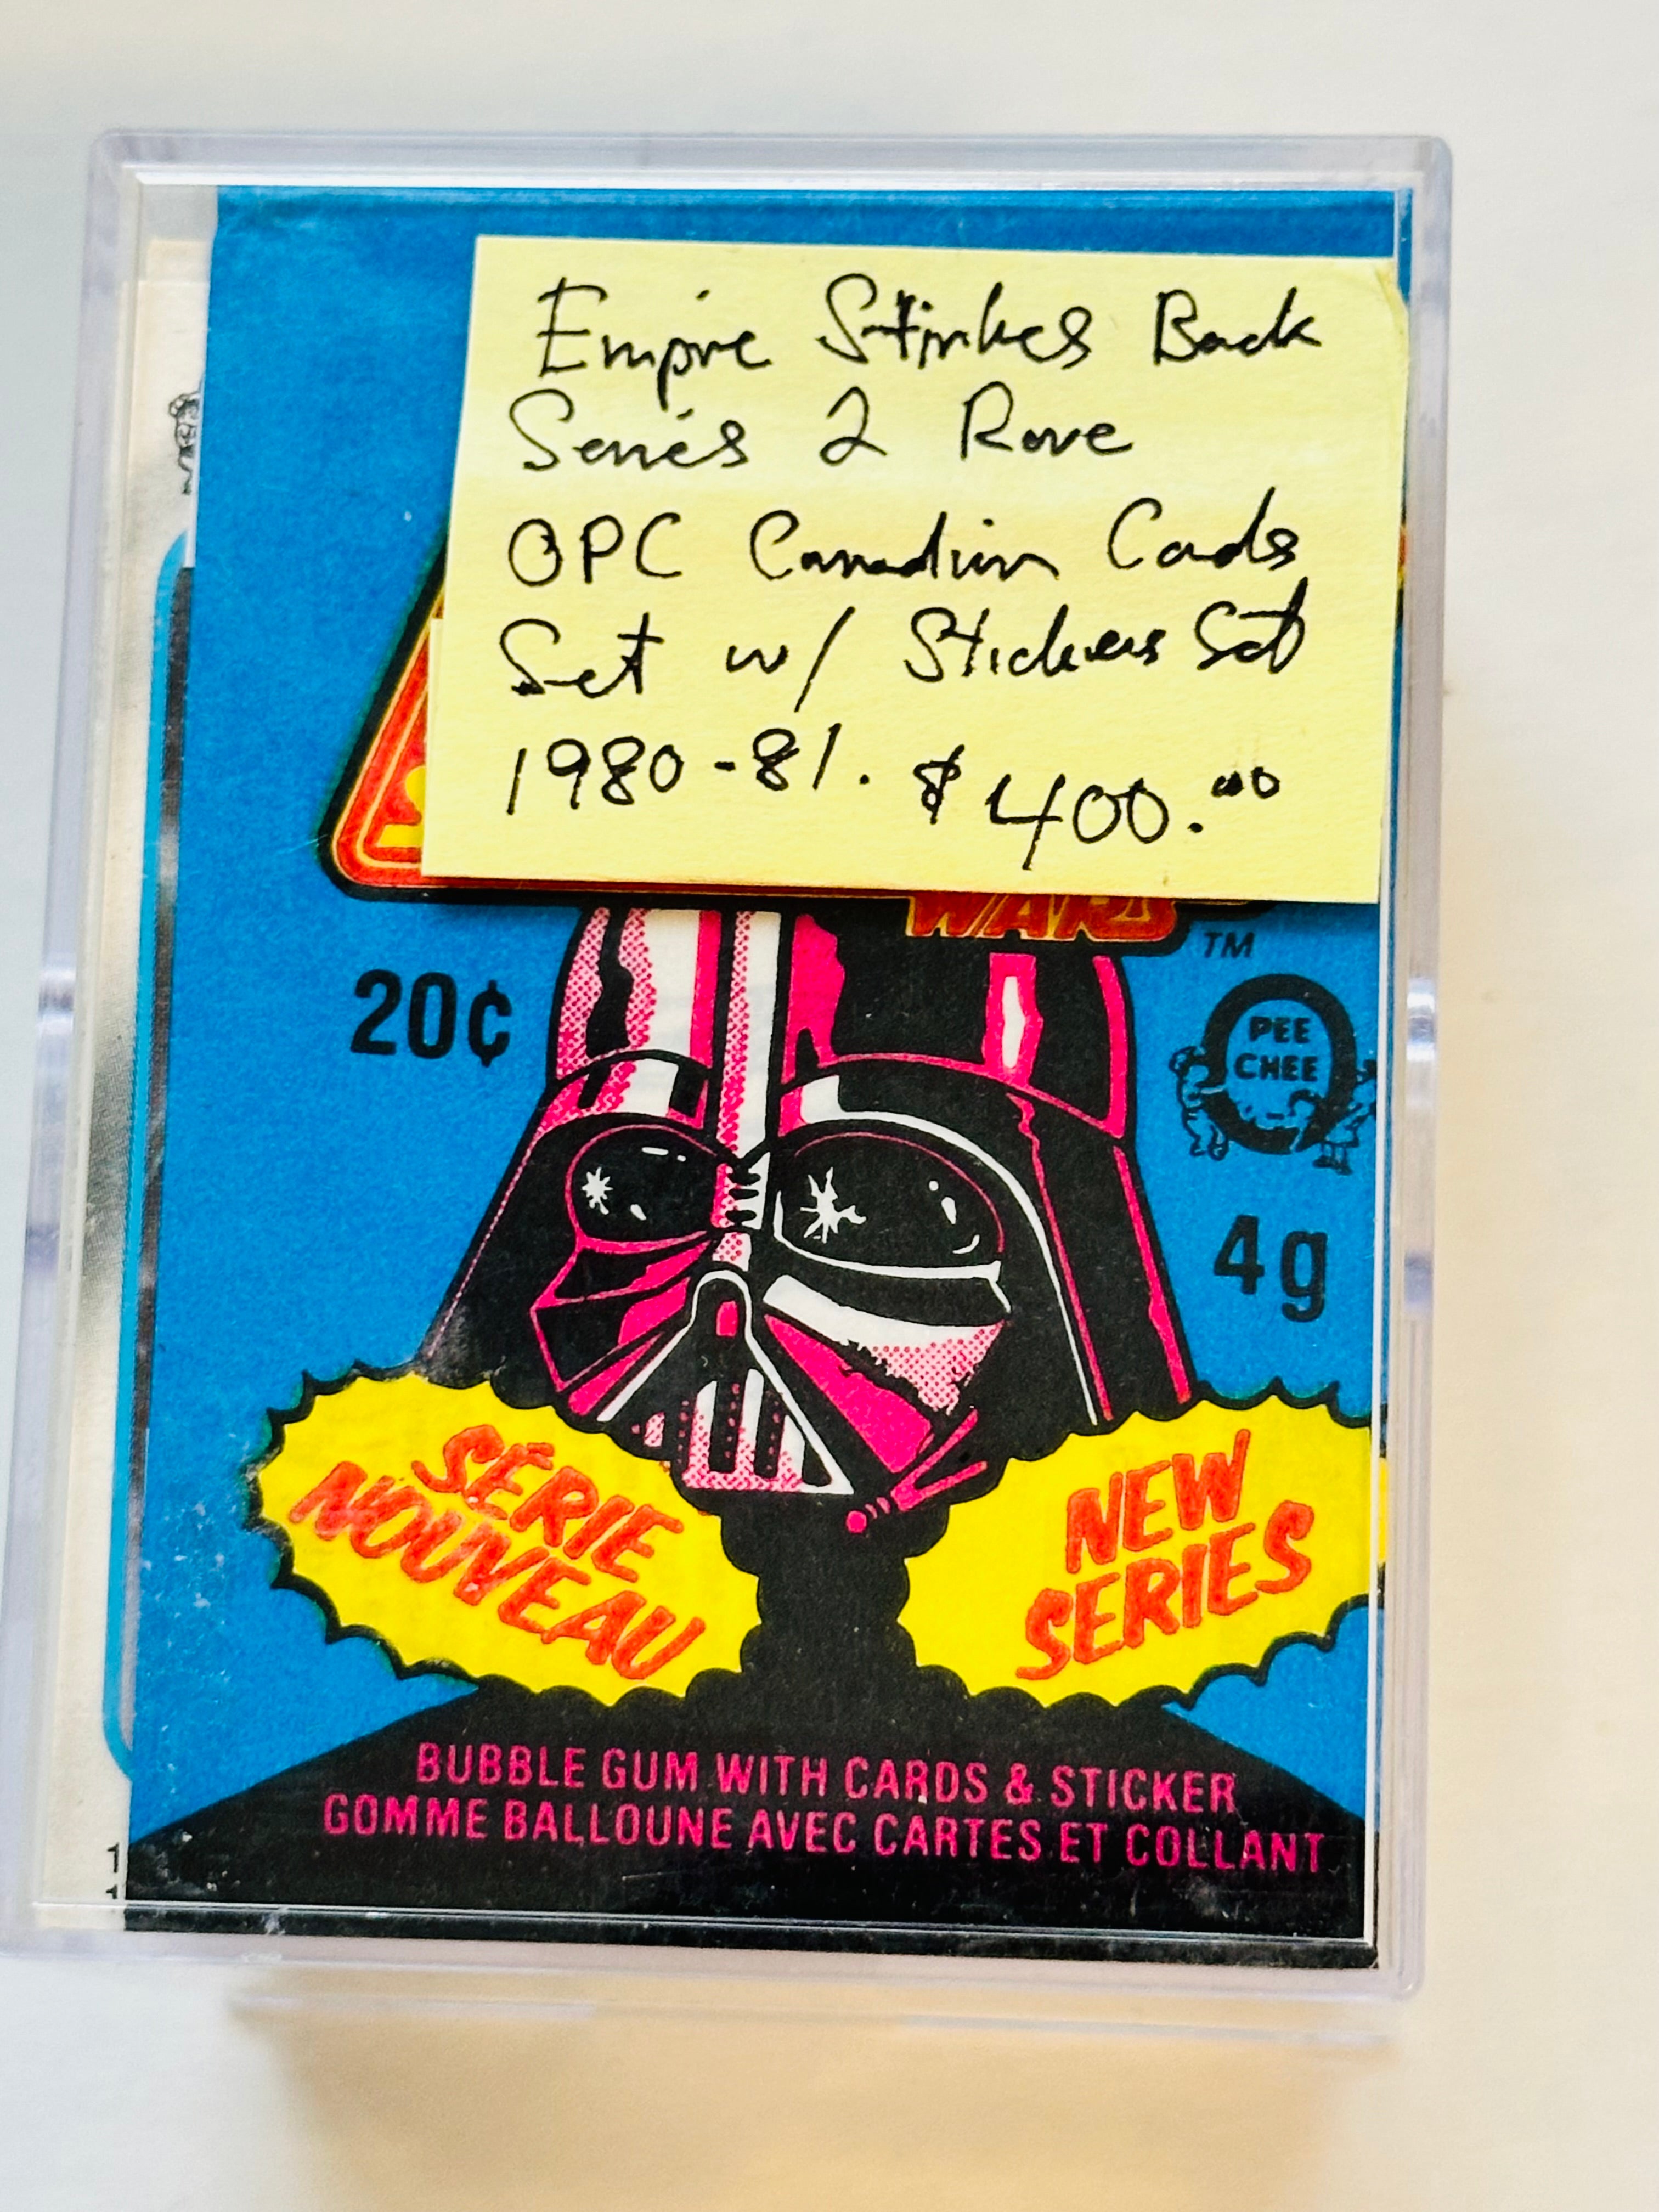 Empire Strikes Back
Series 2 Rare
OPC Canadian Cards
Set w/ Stickers Set
1980-81. $400.00
WARS
TM
20¢
PEE
CHEE
4g
SÉRIE
NOUVEAU
NEW
SERIES
BUBBLE GUM WITH CARDS & STICKER
GOMME BALLOUNE AVEC CARTES ET COLLANT